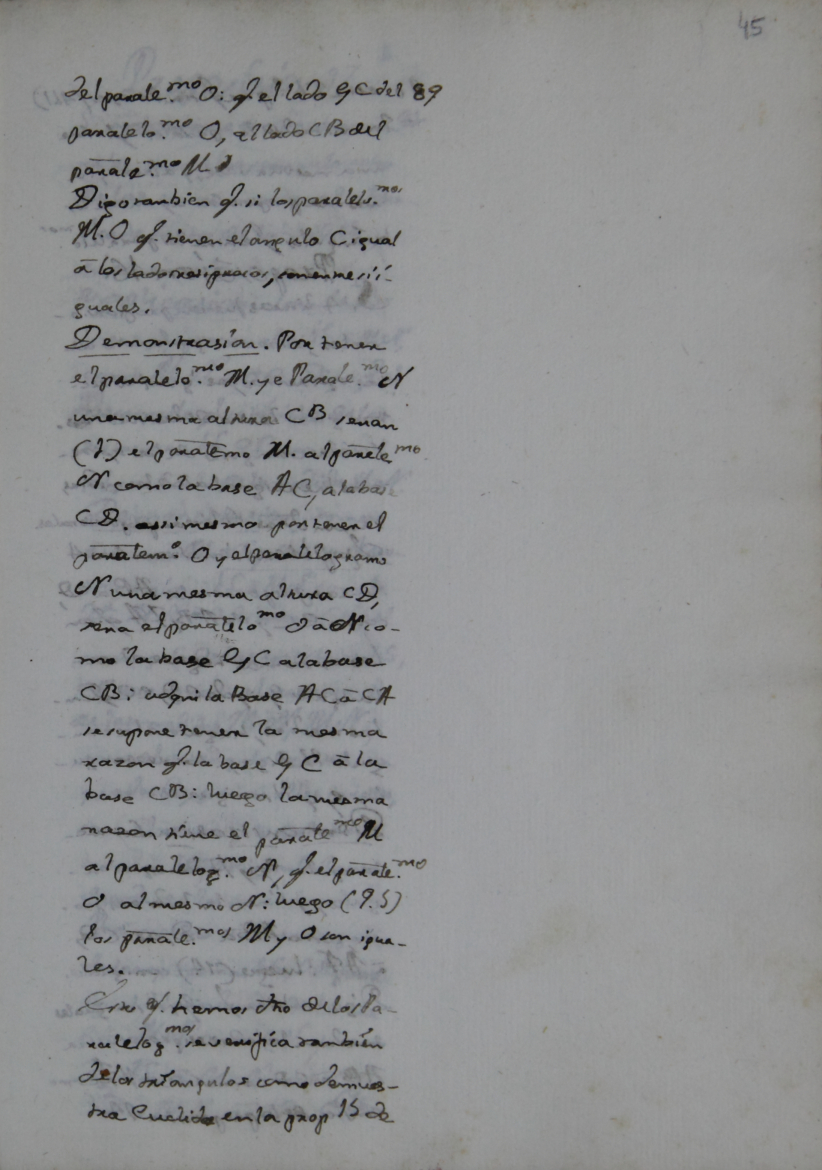 45
del parale.mo O: q. el lado GC del 89
paralelo.mo O, al lado CB del
parale.mo M.
Digo tambien q. si los paralelo.mos
M. O q. tienen el angulo C igual
â los lados resiprocos, son entre si i-
guales.
Demonstrasion. Por tener
el paralelo.mo M. y e Parale.mo N
una mesma altura CB seran
(1) el paralemo M. al parale mo
N como la base AC, a la bas
CD. assimesmo por tener el
paralem.o O y el paralelogramo
N una mesma altura CD,
sera el paralelo mo O â N co-
mo la base GC a la base
CB: aqui la Base AC â CA
se supone tener la mesma
razon q. la base GC â la
base CB: luego la mesma
razon tiene el parale mo M
al paralelog.mo N, q. el parale.mo
O al mesmo N: luego (9.5)
los parale.mos M y O son igua-
les.
Esto q. hemos dho de los Pa-
ralelog mos. se verifica tambien
de los triangulos como demues-
tra Euclides en la prop 15 de